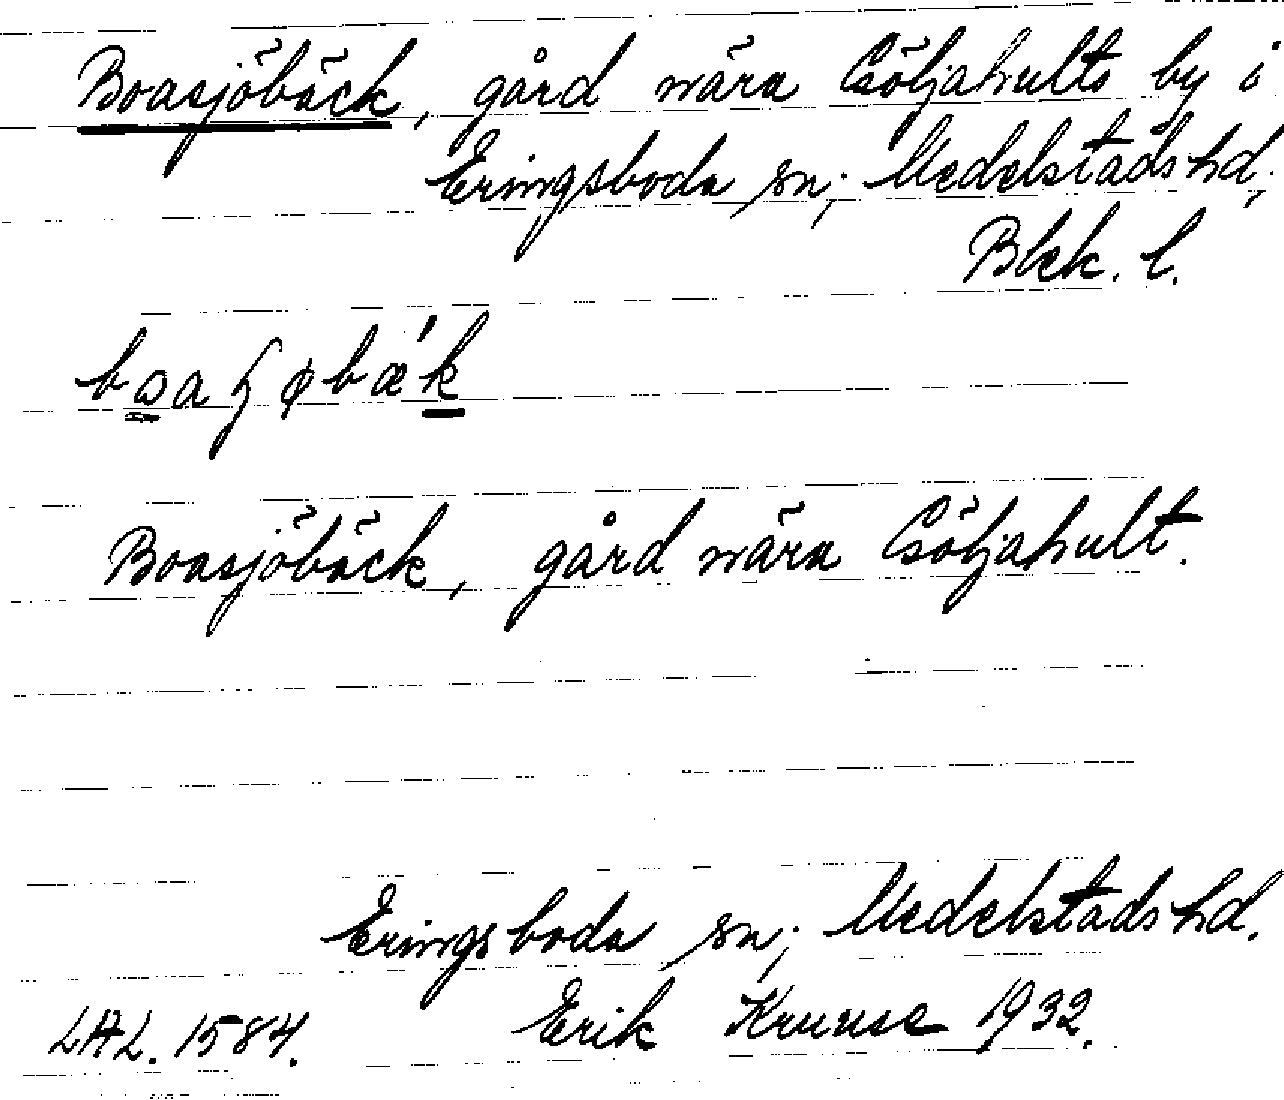 Boasjöbäck, gård nära Göljahults by i
Eringsboda sn; Medelstads hd,
Blek. l.
Boasjöbäck, gård nära Göljahult.
Eringsboda sn; Medelstads hd.
LAL. 1584. Erik Kruuse 1932.